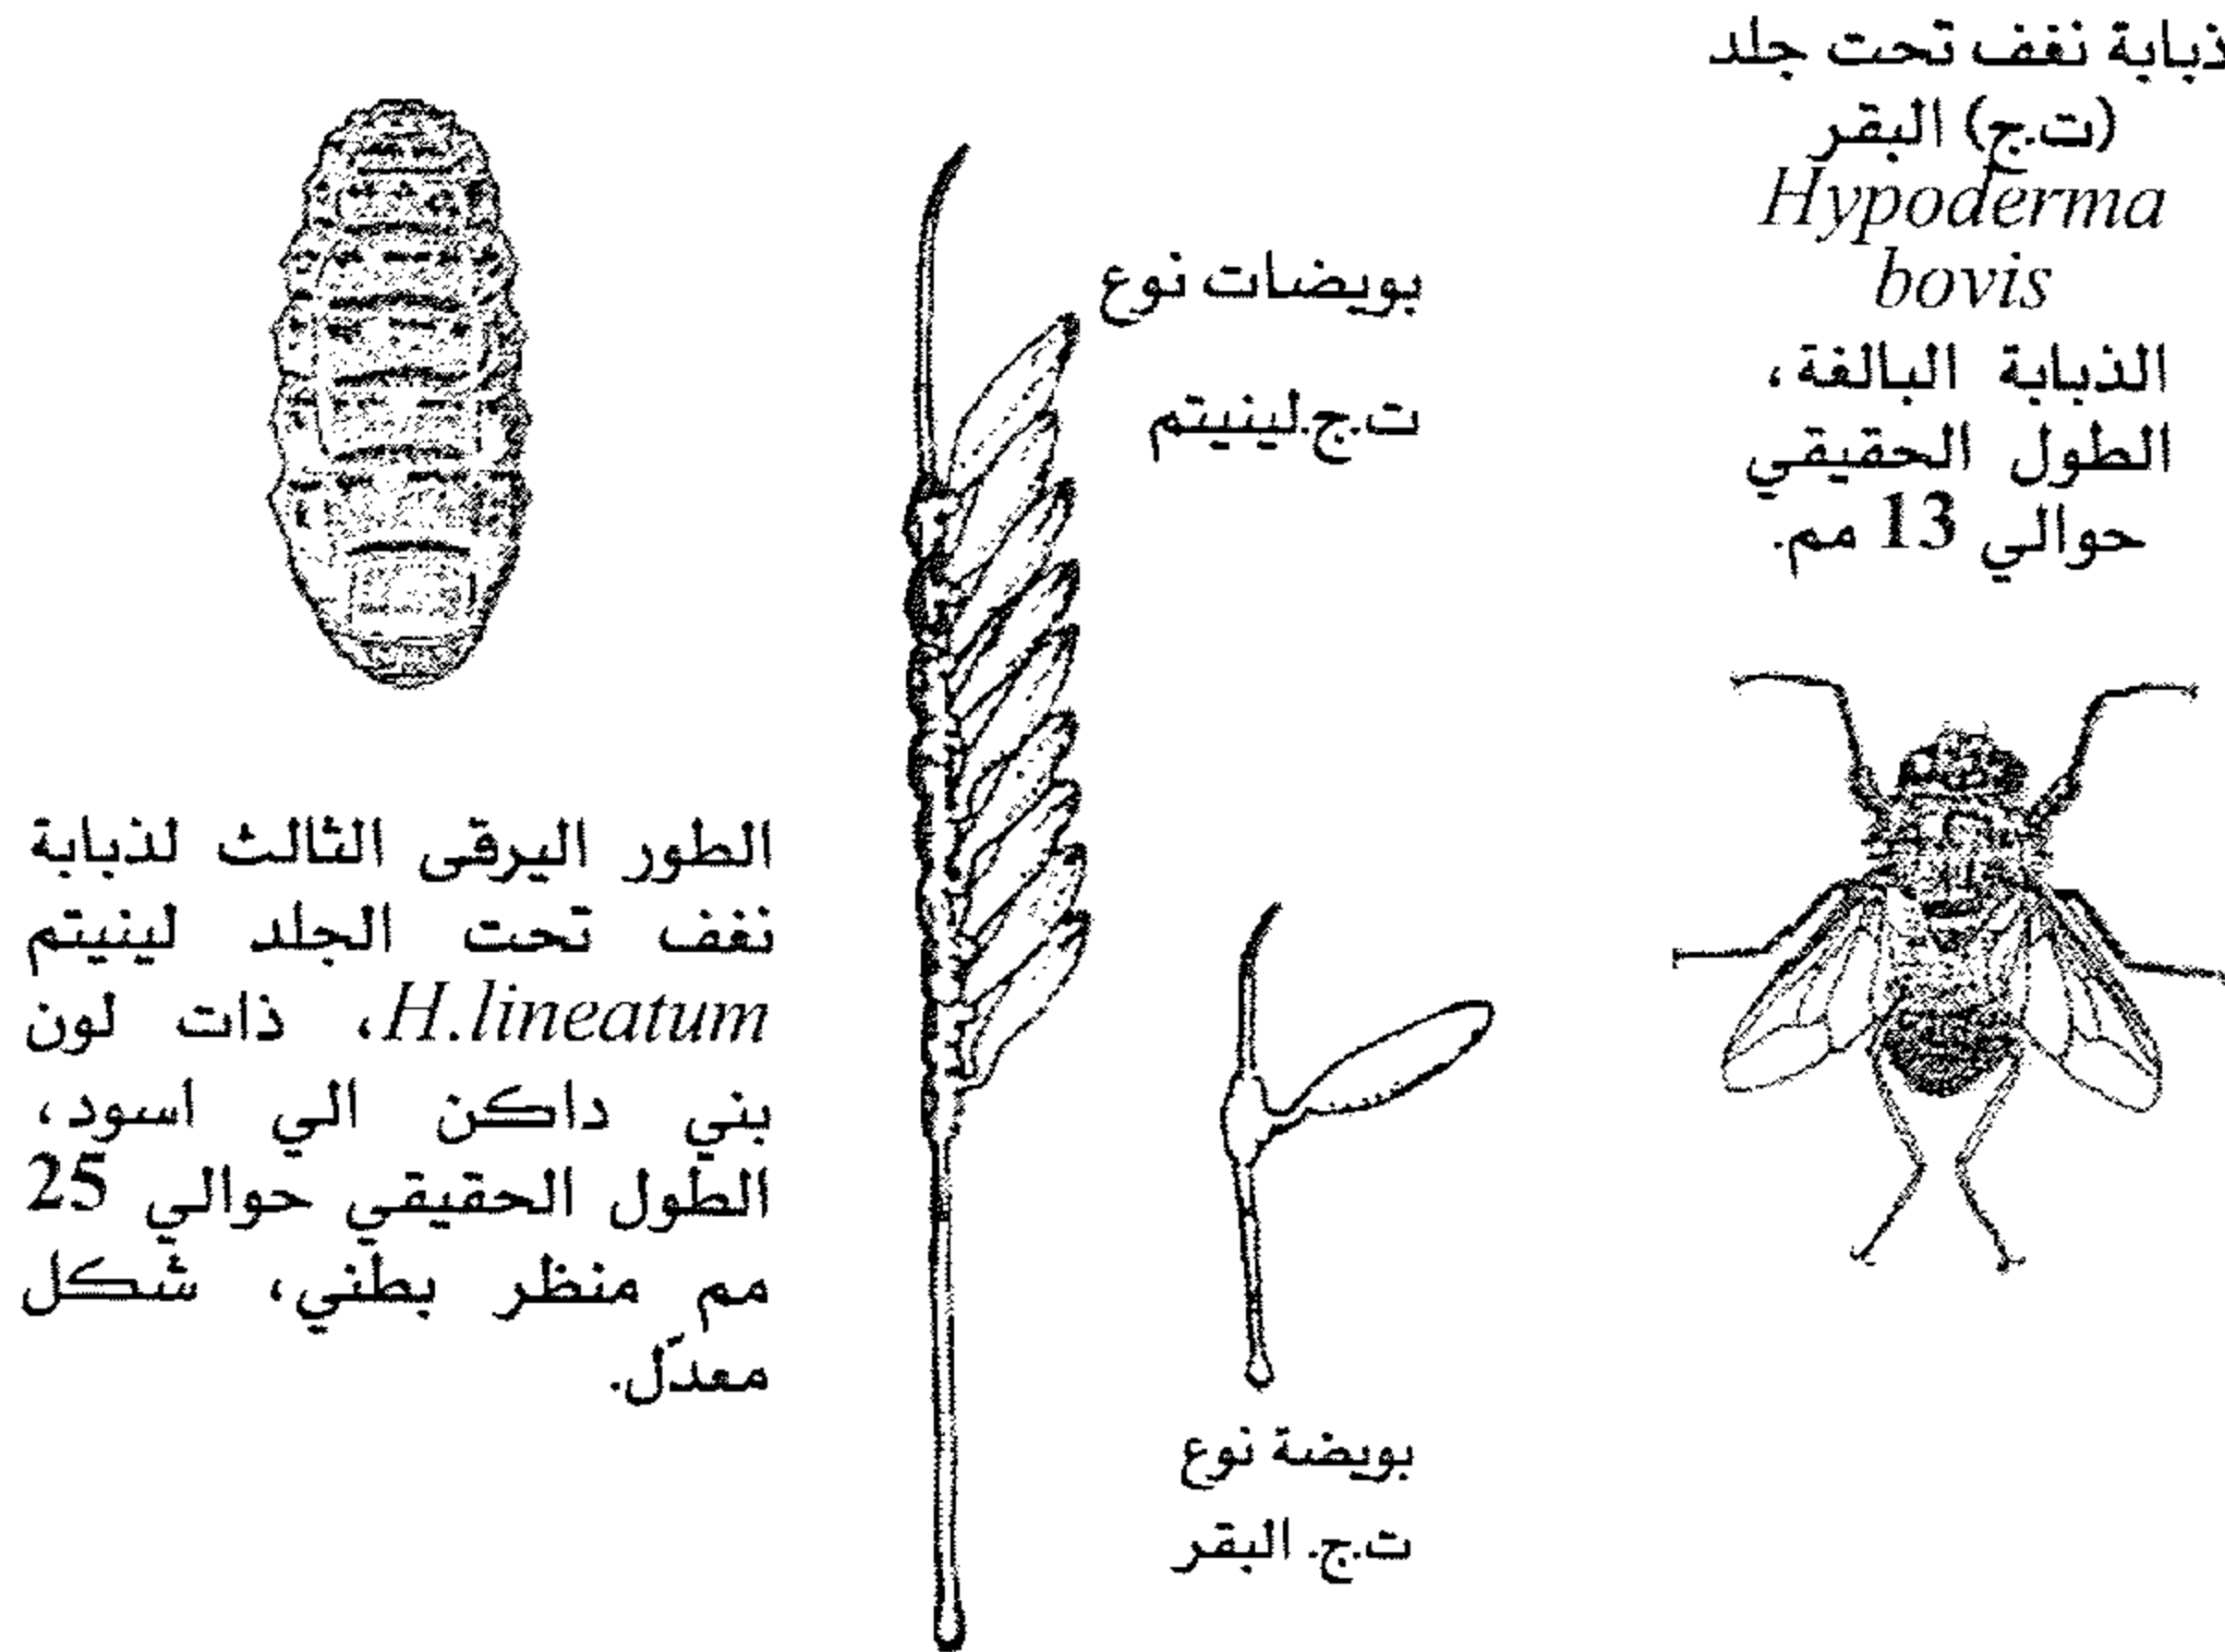 ذبابة نغف تحت جلد
(ت.ج) البقر
Hypoderma
bovis
الذبابة البالغة،
الطول الحقيقي
حوالي 13 مم.
بويضات نوع
ت.ج.لينيتم
بويضة نوع
ت.ج. البقر
الطور اليرقى الثالث لذبابة
نغف تحت الجلد لينيتم
H.lineatum، ذات لون
بني داكن الي اسود،
الطول الحقيقي حوالي 25
مم منظر بطني، شكل
معدّل.